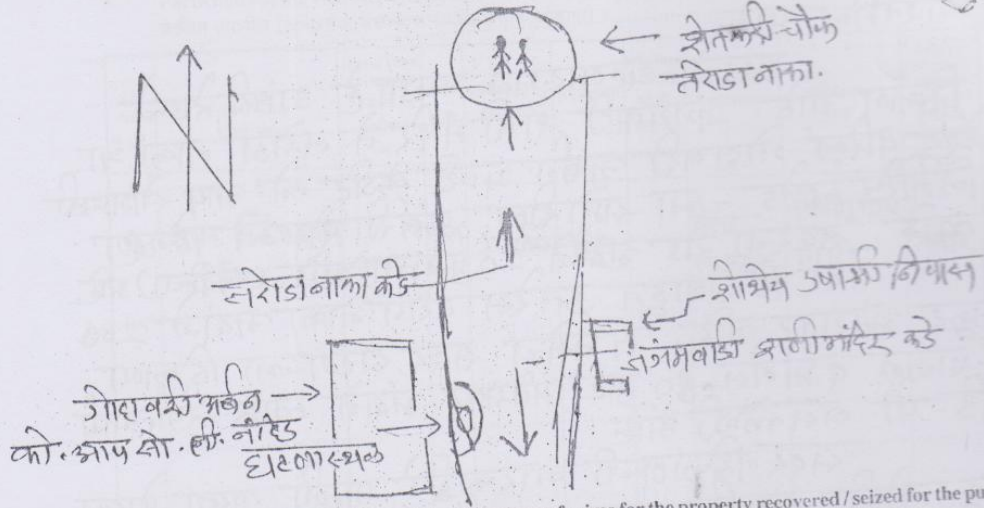 शेतकरी चौक
तरोडा नाका.
N
तरोडा नाका कडे
निवास
जंगमवाडी शनी मंदिर कडे
गोदावरी अर्बन
को. आप सो. ली. नांदेड
घटनास्थळ
for the property recovered / seized for the pu